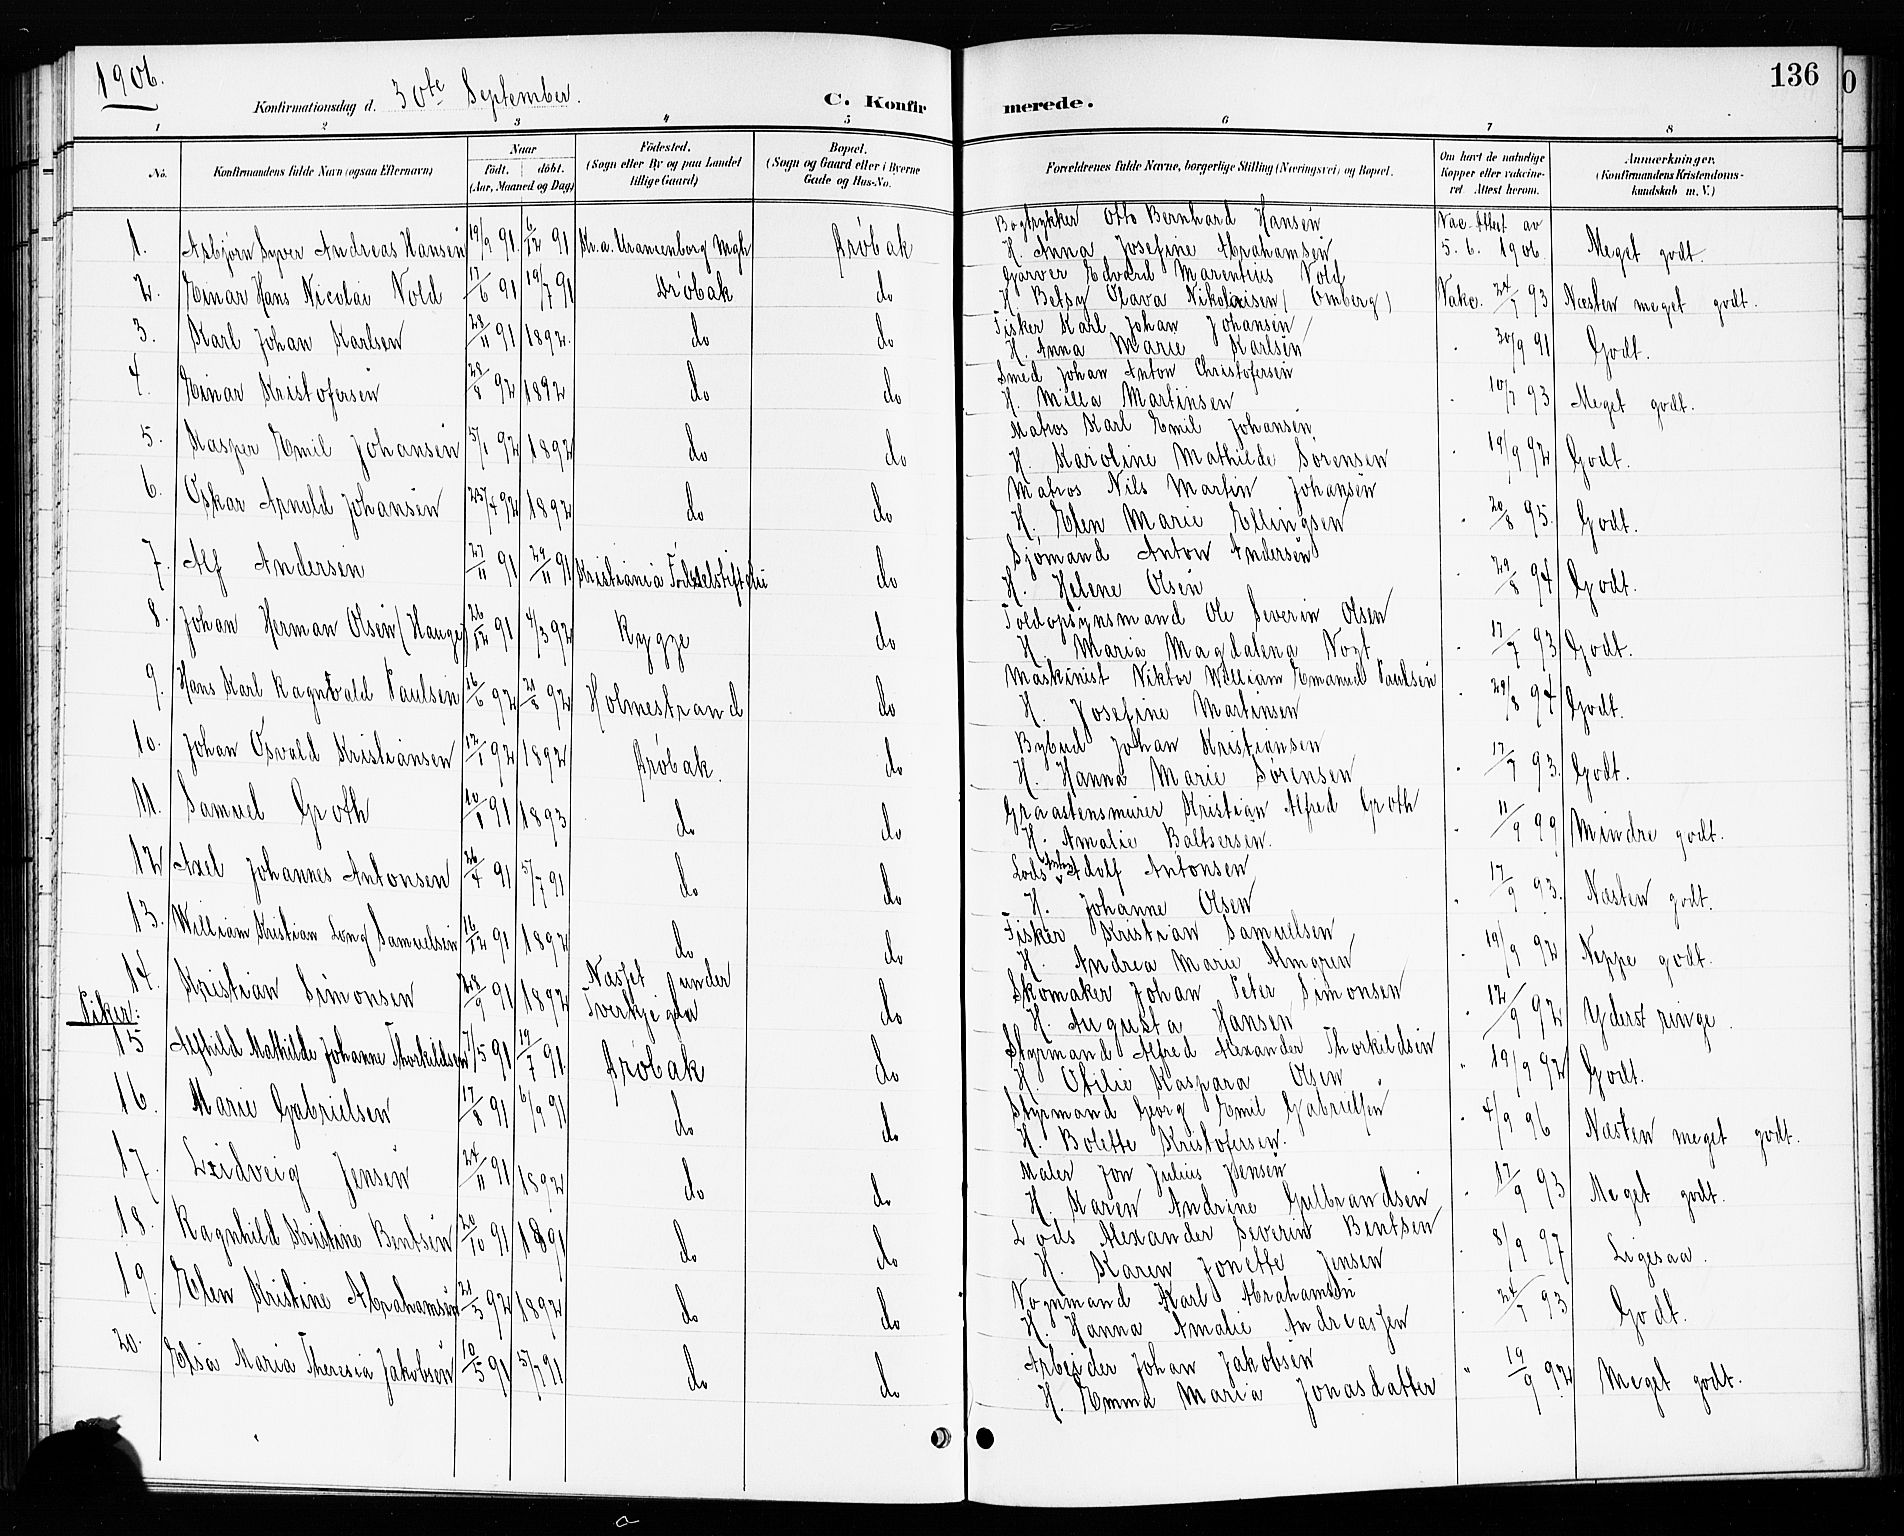 1906.
Konfirmationsdag d. 30te September.
C. Konfir
merede.
136
0
1 2 3 4 5 6 7 8
No.
Konfirmandens fulde Navn (ogsaa Efternavn)
Naar
født. døbt.
(Aar, Maaned og Dag)
Fødested.
(Sogn eller By og paa Landet
tillige Gaard)
Bopæl.
(Sogn og Gaard eller i Byerne
Gade og Hus-No.
Forældrenes fulde Navne, borgerlige Stilling (Næringsvei) og Bopæl.
Om havt de naturlige
Kopper eller vakcine-
ret. Attest herom.
Anmærkninger.
(Konfirmandens Kristendoms-
kundskab m. V.)
1. Asbjørn Syver Andreas Hansen 19/9 91 6/12 91 Kr.a. Uranienborg Mgh Drøbak Bogtrykker Otto Bernhard Hansen Vac. Attest av
H. Anna Josefine Abrahamsen 5. 6. 1906. Meget godt.
2. Einar Hans Nicolai Vold 17/6 91 19/7 91 Drøbak do Garver Edvard Marentius Vold
H. Betsy Olava Nikolaisen (Omberg) Vakc. 24/7 93 Næsten meget godt.
3. Karl Johan Karlsen 28/11 91 1892. do do Fisker Karl Johan Johansen
H. Anna Marie Karlsen " 30/9 91 Godt.
4. Einar Kristofersen 28/8 92 1892 do do Smed Johan Anton Christofersen
H. Milla Martinsen " 10/7 93 Meget godt.
5. Kasper Emil Johansen 5/1 92 1892 do do Matros Karl Emil Johansen
H. Karoline Mathilde Sørensen " 19/9 92 Godt.
6. Oskar Arnold Johansen 25/4 92 1892 do do Matros Nils Martin Johansen
H. Elen Marie Ellingsen " 20/8 95. Godt.
7. Alf Andersen 27/11 91 29/11 91 Kristiania Fødselsstiftelse do Sjømand Anton Andersen
H. Helene Olsen " 29/8 94 Godt.
8. Johan Herman Olsen (Hauge) 26/12 91 4/3 92 Rygge do Toldopsynsmand Ole Severin Olsen
H. Maria Magdalena Vogt " 17/7 93 Godt.
9. Hans Karl Ragnvald Paulsen 16/6 92 21/8 92 Holmestrand do Maskinist Viktor William Emanuel Paulsen
H. Josefine Martinsen " 29/8 94 Godt.
10. Johan Osvald Kristiansen 12/1 92 1892 Drøbak. do Bybud Johan Kristiansen
H. Hanna Marie Sørensen " 17/7 93. Godt.
11. Samuel Groth 10/1 91 1893 do do Graastensmurer Kristian Alfred Groth
H. Amalie Baltsersen. " 11/9 99 Mindre godt.
12 Axel Johannes Antonsen 26/4 91 5/7 91 do do Lods Adolf Antonsen
H. Johanne Olsen " 17/9 93. Næsten godt.
13. William Kristian Long Samuelsen 16/12 91 1892 do do Fisker Kristian Samuelsen
H. Andrea Marie Almgren " 19/9 92 Neppe godt.
14. Kristian Simonsen 28/9 91 1892 Næsset under
Tverkjeglen do Skomaker Johan Peter Simonsen
H. Augusta Hansen " 12/9 92 Yderst ringe.
Piker:
15 Alfhild Mathilde Johanne Thorkildsen 7/5 91 19/7 91 Drøbak do Styrmand Alfred Alexander Thorkildsen
H. Otilie Kaspara Olsen " 19/9 92 Godt.
16. Marie Gabrielsen 17/8 91 6/9 91 do do Styrmand Georg Emil Gabrielsen
H. Bolette Kristofersen. " 4/9 96 Næsten meget godt.
17. Leidveig Jensen 24/11 91 1892 do do Maler Jon Julius Jensen
H. Karen Andrine Gulbrandsen " 17/9 93 Meget godt.
18. Ragnhild Kristine Bentsen 20/10 91 1891 do do Lods Alexander Severin Bentsen
H. Karen Jonette Jensen " 8/9 97 Ligesaa.
19. Elen Kristine Abrahamsen 21/5 92 1892 do do Vognmand Karl Abrahamsen
H. Hanna Amalie Andreassen " 24/7 93 Godt.
20. Elsa Maria Theresia Jakobsen 10/5 91 5/7 91 do do Arbeider Johan Jakobsen
H. Emma Maria Jonasdatter " 19/9 92 Meget godt.